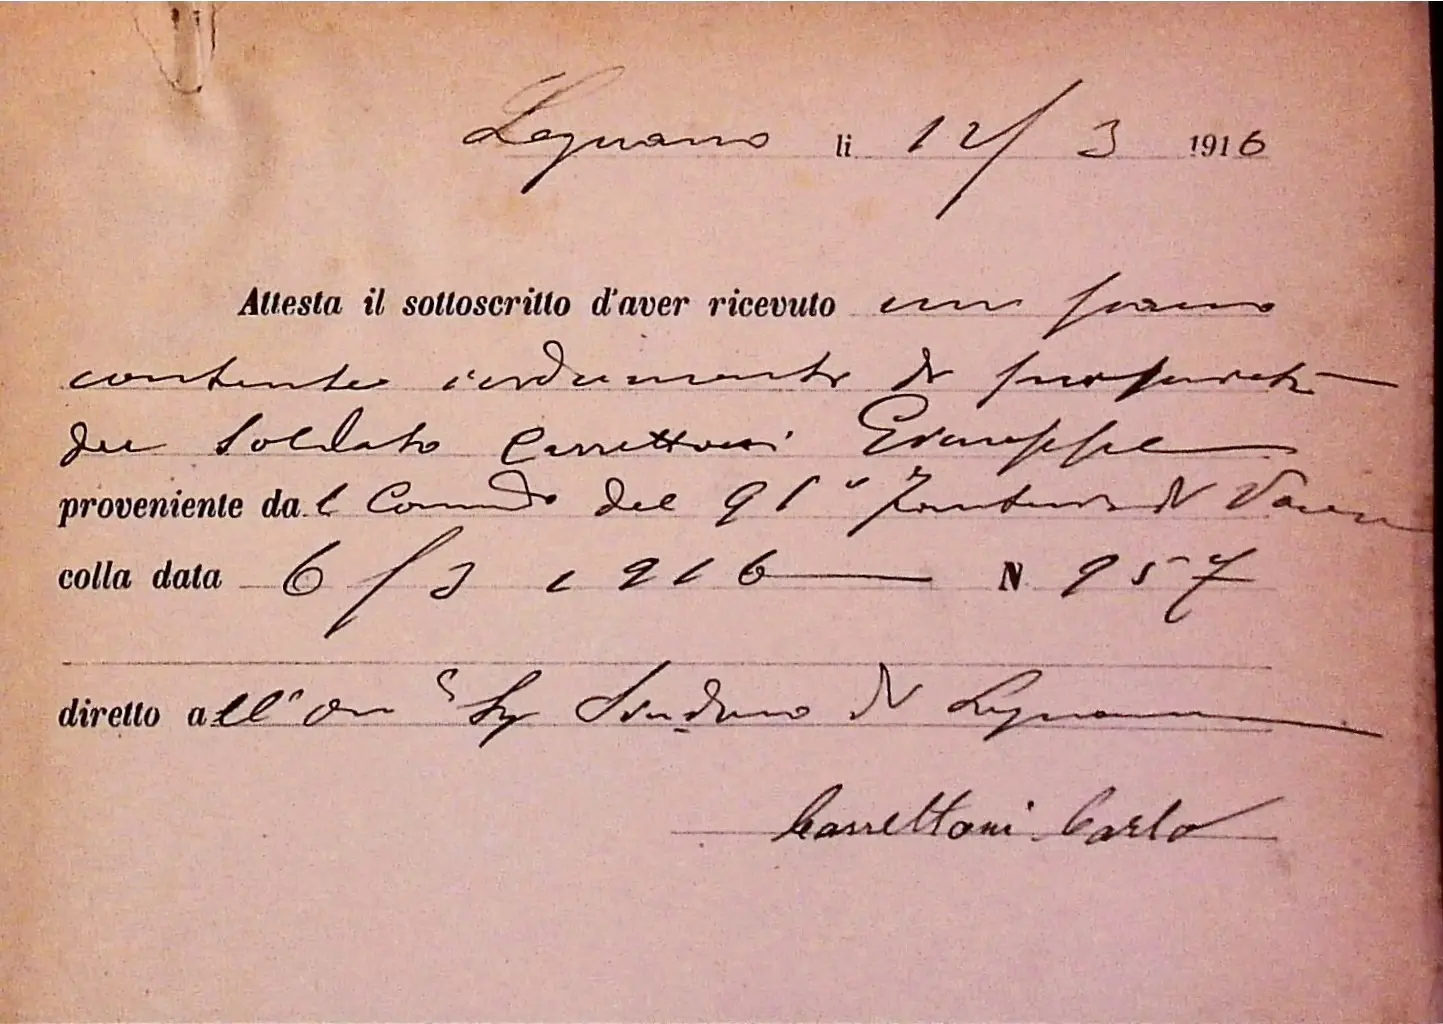 Legnano li 12/3 1916
Attesta il sottoscritto d'aver ricevuto un
contenente indumenti di proprietà
del Soldato Carrettoni Giuseppe
proveniente dal Comando del 91° Fanteria di
colla data 6/3 1916 N 957
diretto all' On Sig Sindaco di Legnano
Carrettoni Carlo